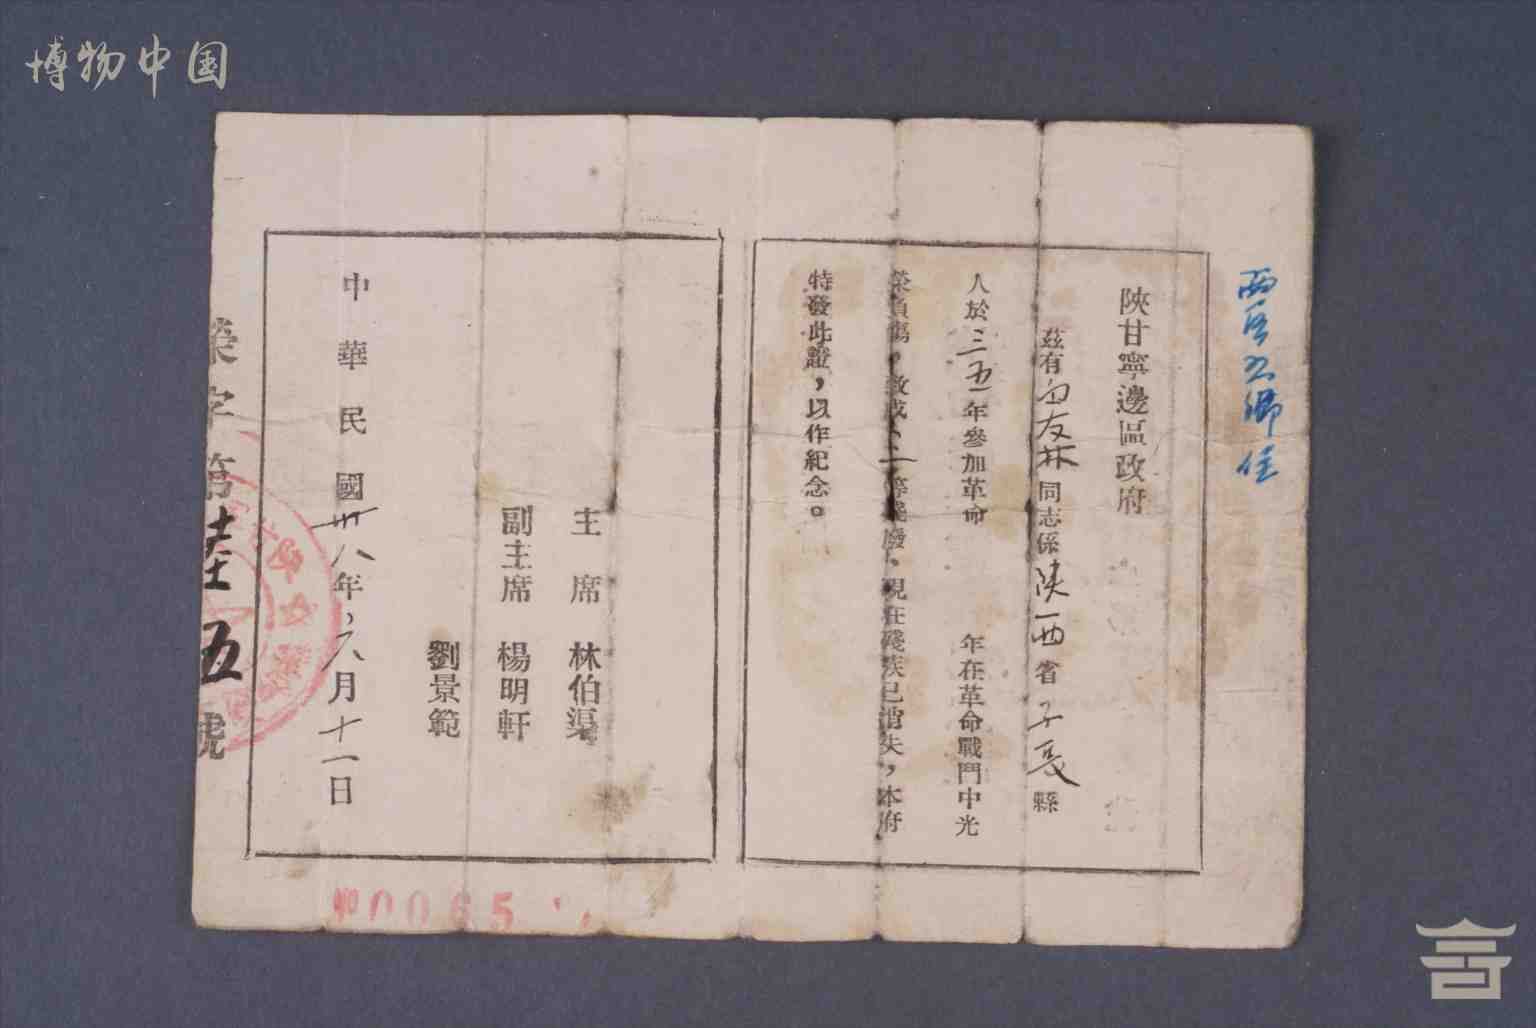 博物中国
陝甘寧邊區政府
茲有白友林同志係陝西省子長縣
人於三五年參加革命 年在革命戰鬥中光
榮負傷，致成二等殘廢，現在殘疾已消失，本府
特發此證，以作紀念。
主席 林伯渠
副主席 楊明軒
劉景範
中華民國卅八年六月十一日
榮字第陸五號
0065